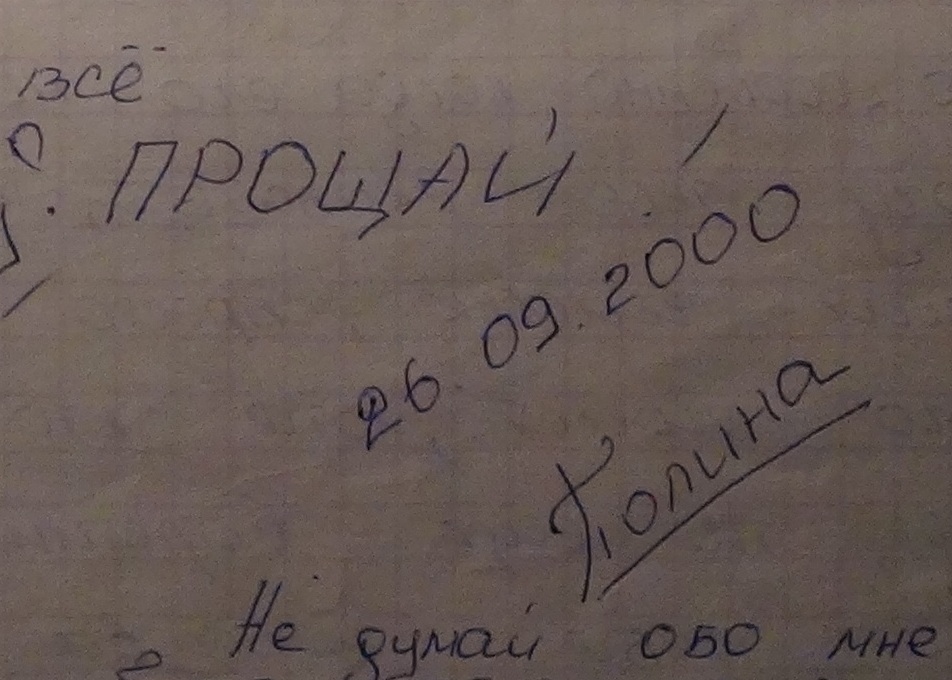 всё
ПРОЩАЙ!
26.09.2000
Полина
Не думай обо мне